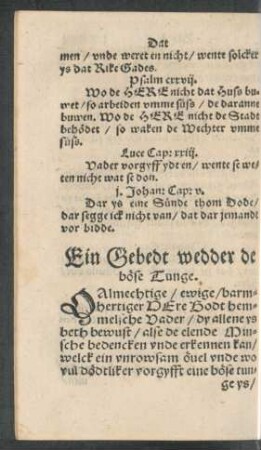 Dat
men / vnde weret en nicht / wente solcker
ys dat Rike Gades.
Psalm cxxvij.
Wo de HERE nicht dat Huss bu-
wet / so arbeiden vmme süss / de daranne
buwen. Wo de HERE nicht de Stadt
behödet / so waken de Wechter vmme
süss.
Luce Cap: xxiij.
Vader vorgyff ydt en / wente se we-
ten nicht wat se don.
j. Johan: Cap: v.
Dar ys eine Sünde thom Dode /
dar segge ick nicht van / dat dar jemandt
vor bidde.
Ein Gebedt wedder de
böse Tunge.
O Almechtige / ewige / barm-
hertiger HEre Godt hem-
melische Vader / dy allene ys
beth bewust / alse de elende Min-
sche bedencken vnde erkennen kan /
welck ein vnrowsam öuel vnde wo
vul dödtliker vorgyfft eine böse tun-
ge ys /